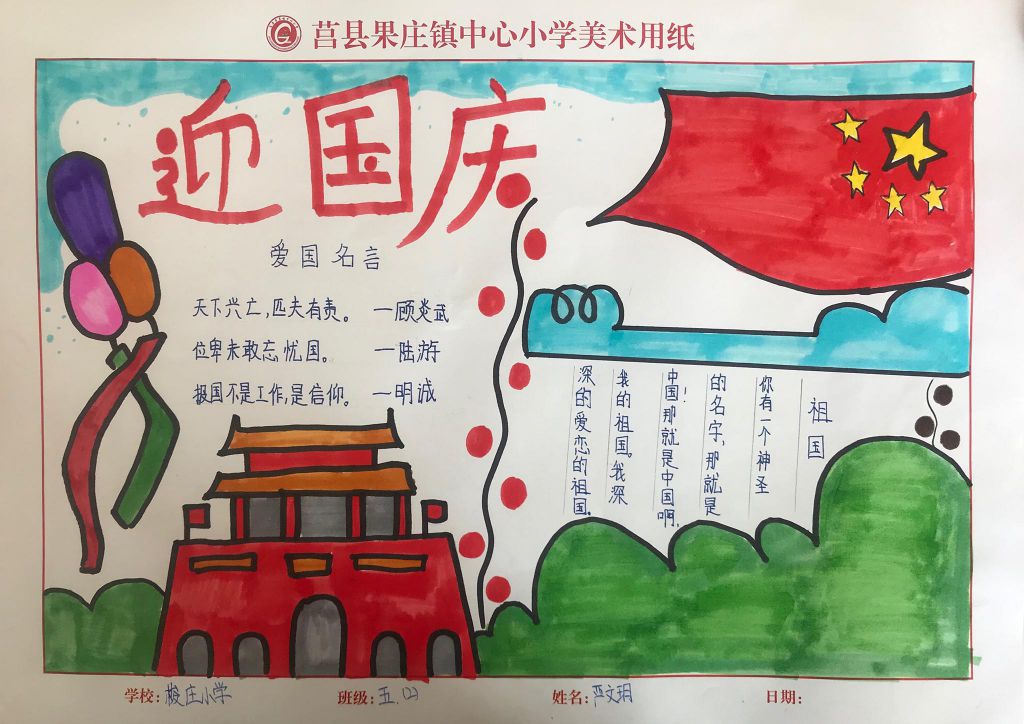 莒县果庄镇中心小学美术用纸
迎国庆
爱国名言
天下兴亡,匹夫有责。 —顾炎武
位卑未敢忘忧国。 —陆游
报国不是工作,是信仰。 —明诚
祖国
你有一个神圣
的名字,那就是
中国!那就是中国啊,
我的祖国。我深
深的爱恋的祖国。
学校: 庄小学
班级: 五.(2)
姓名: 严文玥
日期: